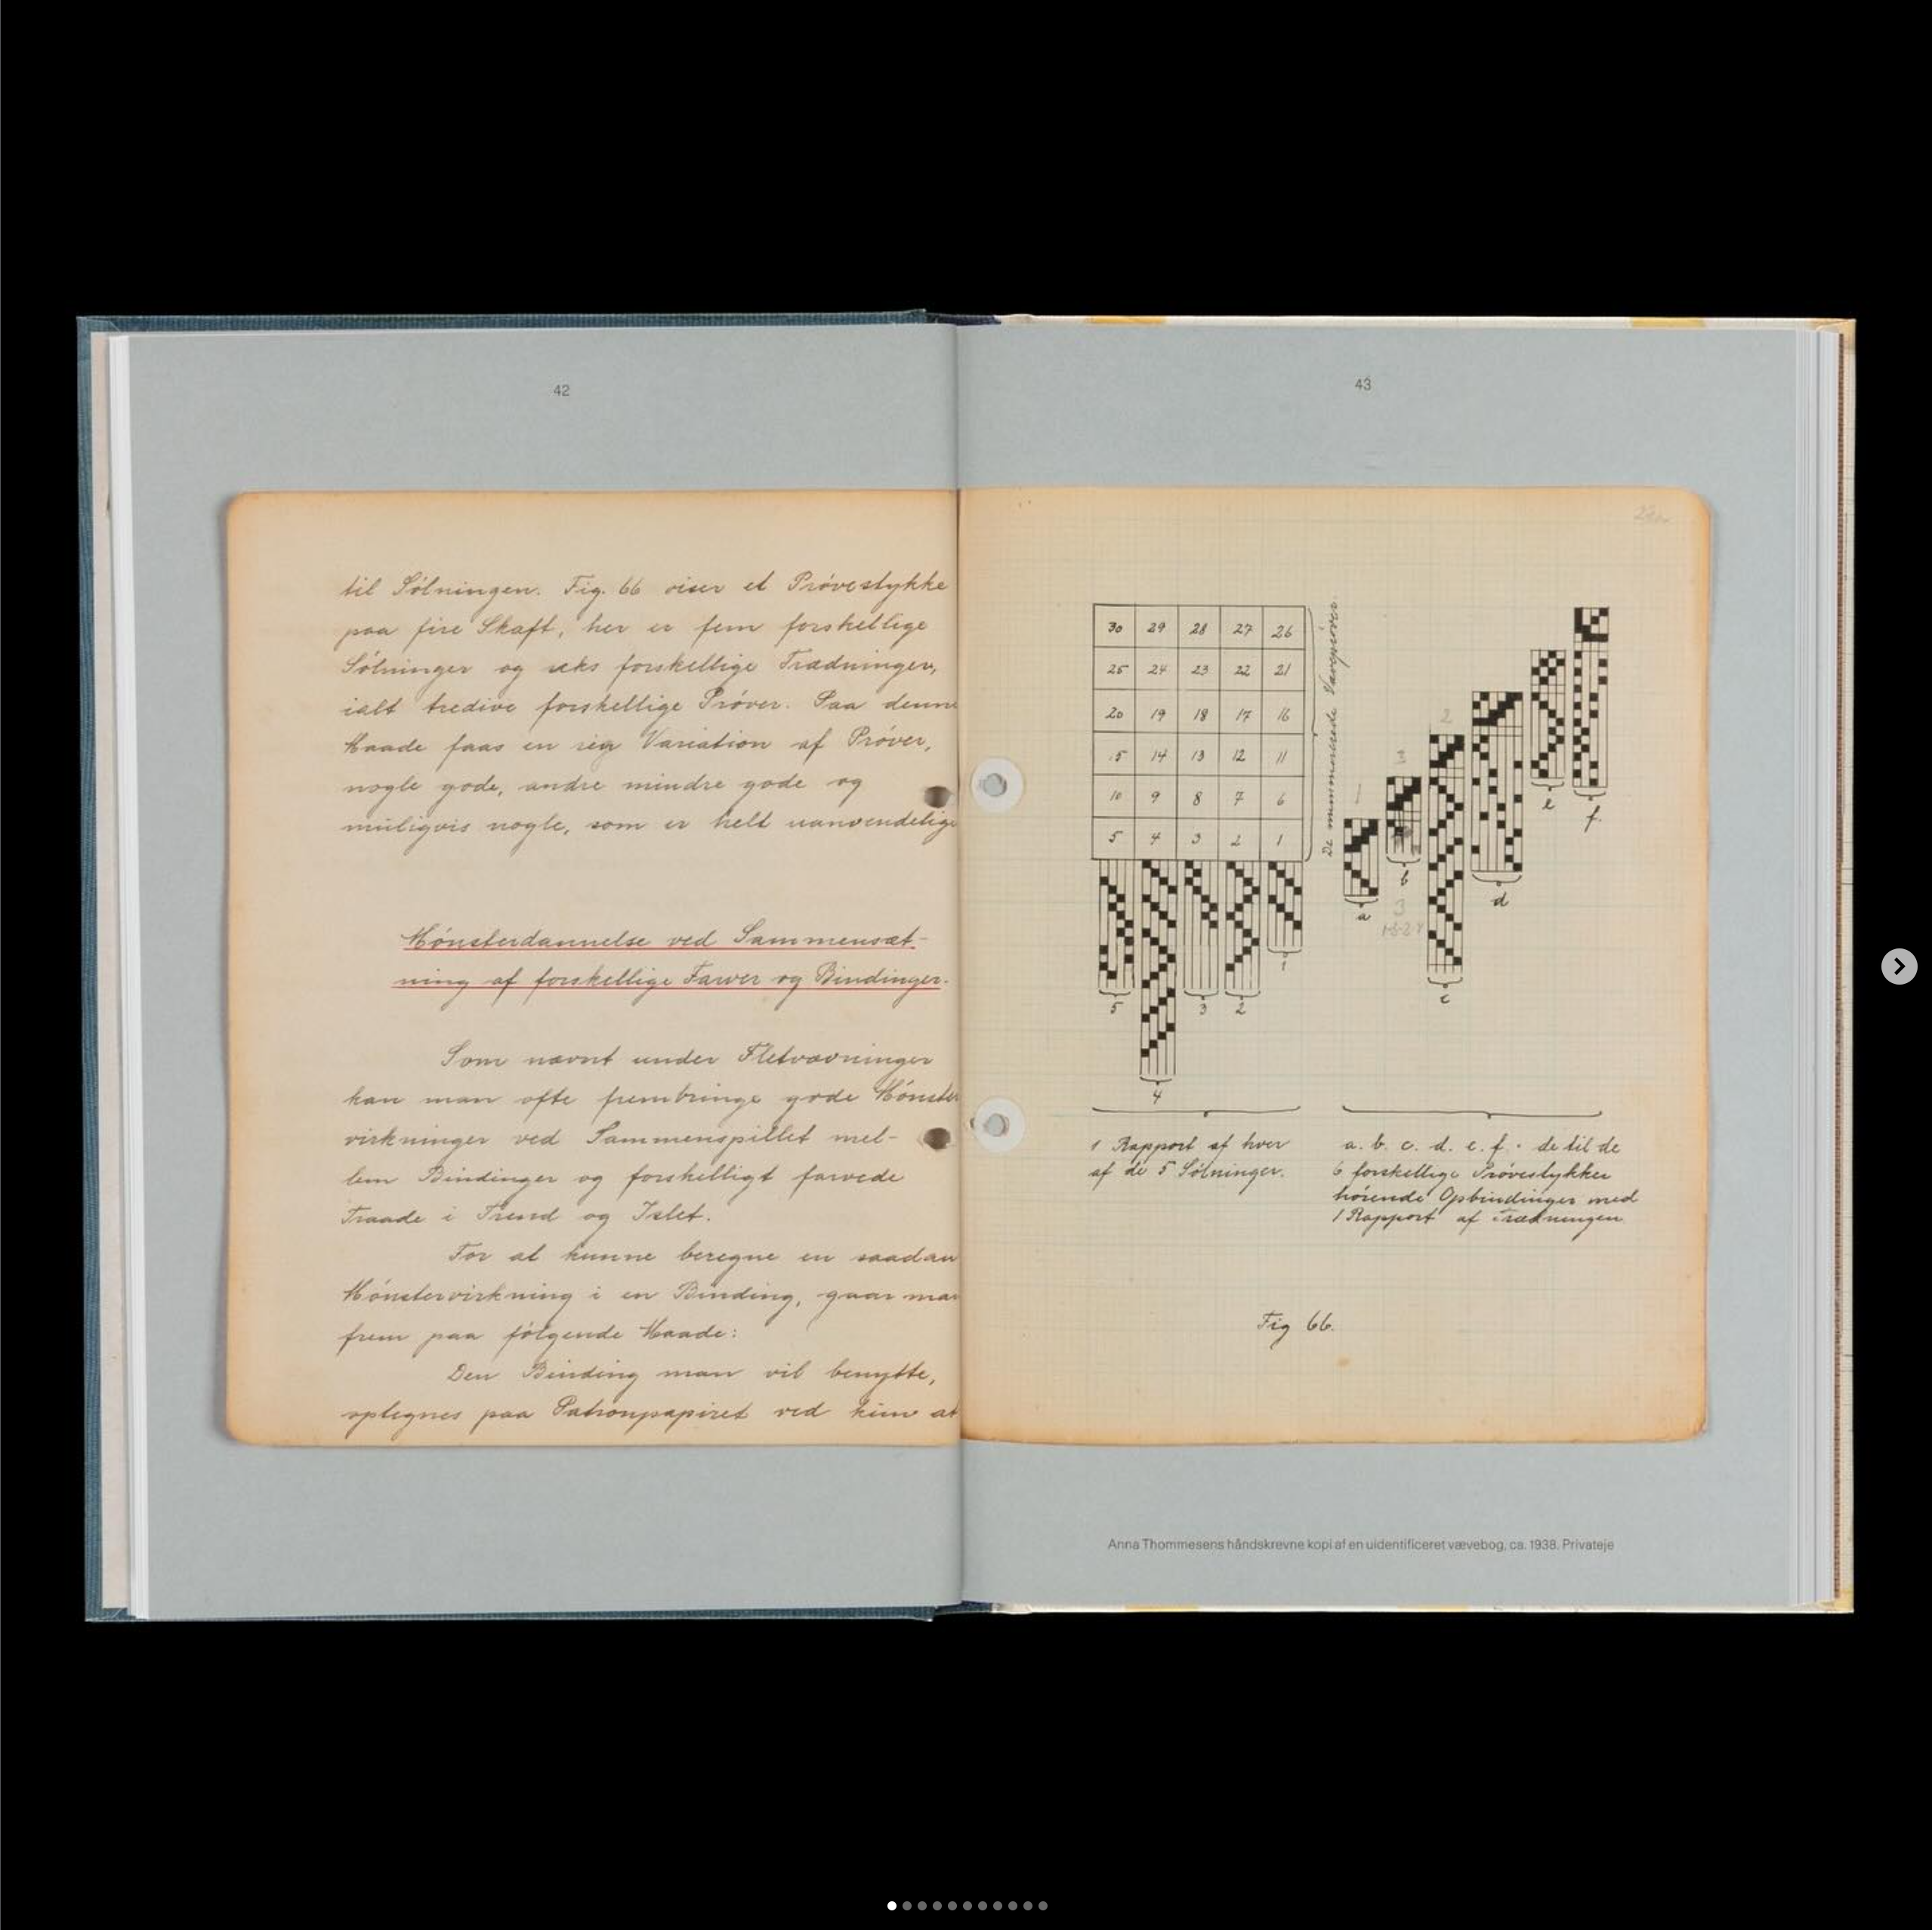 42
til Sólningen. Fig. 66 viser et Próvestykke
paa fire Skaft, her er fem forskellige
Sólninger og seks forskellige Trædninger,
ialt tredive forskellige Próver. Paa denne
Maade faas en rig Variation af Próver,
nogle gode, andre mindre gode og
muligvis nogle, som er helt uanvendelige
Mónsterdannelse ved Sammensæt-
ning af forskellige Farver og Bindinger.
Som nævnt under Fletvævninger
kan man ofte frembringe gode Mónster
virkninger ved Sammenspillet mel-
lem Bindinger og forskelligt farvede
Traade i Trend og Islet.
For at kunne beregne en saadan
Mónstervirkning i en Binding, gaar man
frem paa fólgende Maade:
Den Binding man vil benytte,
optegnes paa Patronpapiret ved kun at
43
30 29 28 27 26
25 24 23 22 21
20 19 18 17 16
15 14 13 12 11
10 9 8 7 6
5 4 3 2 1
De nummererede Vævepróver
5 4 3 2 1
1
3
2
a b c d e f.
3
1-3-2-4
1 Rapport af hver
af de 5 Sólninger.
a. b. c. d. e. f. - de til de
6 forskellige Próvestykker
hórende Opbindinger med
1 Rapport af Trædningen
Fig 66.
Anna Thommesens håndskrevne kopi af en uidentificeret vævebog, ca. 1938. Privateje